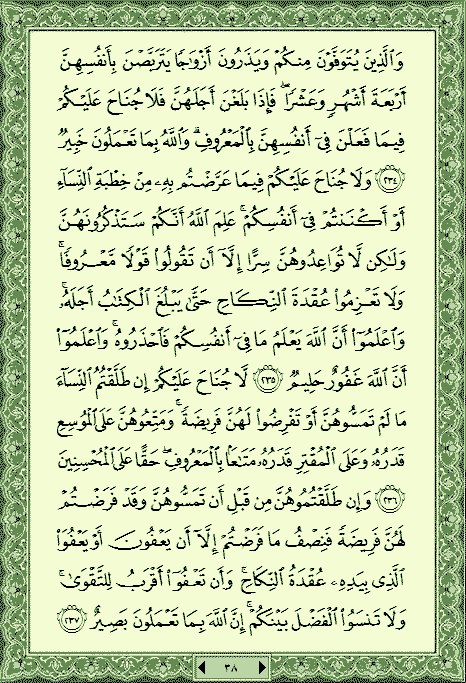 وَالَّذِينَ يُتَوَفَّوْنَ مِنكُمْ وَيَذَرُونَ أَزْوَاجًا يَتَرَبَّصْنَ بِأَنفُسِهِنَّ
أَرْبَعَةَ أَشْهُرٍ وَعَشْرًا ۖ فَإِذَا بَلَغْنَ أَجَلَهُنَّ فَلَا جُنَاحَ عَلَيْكُمْ
فِيمَا فَعَلْنَ فِي أَنفُسِهِنَّ بِالْمَعْرُوفِ ۗ وَاللَّهُ بِمَا تَعْمَلُونَ خَبِيرٌ
٢٣٤ وَلَا جُنَاحَ عَلَيْكُمْ فِيمَا عَرَّضْتُم بِهِ مِنْ خِطْبَةِ النِّسَاءِ
أَوْ أَكْنَنتُمْ فِي أَنفُسِكُمْ ۚ عَلِمَ اللَّهُ أَنَّكُمْ سَتَذْكُرُونَهُنَّ
وَلَٰكِن لَّا تُوَاعِدُوهُنَّ سِرًّا إِلَّا أَن تَقُولُوا قَوْلًا مَّعْرُوفًا ۚ
وَلَا تَعْزِمُوا عُقْدَةَ النِّكَاحِ حَتَّىٰ يَبْلُغَ الْكِتَابُ أَجَلَهُ ۚ
وَاعْلَمُوا أَنَّ اللَّهَ يَعْلَمُ مَا فِي أَنفُسِكُمْ فَاحْذَرُوهُ ۚ وَاعْلَمُوا
أَنَّ اللَّهَ غَفُورٌ حَلِيمٌ ٢٣٥ لَّا جُنَاحَ عَلَيْكُمْ إِن طَلَّقْتُمُ النِّسَاءَ
مَا لَمْ تَمَسُّوهُنَّ أَوْ تَفْرِضُوا لَهُنَّ فَرِيضَةً ۚ وَمَتِّعُوهُنَّ عَلَى الْمُوسِعِ
قَدَرُهُ وَعَلَى الْمُقْتِرِ قَدَرُهُ مَتَاعًا بِالْمَعْرُوفِ ۖ حَقًّا عَلَى الْمُحْسِنِينَ
٢٣٦ وَإِن طَلَّقْتُمُوهُنَّ مِن قَبْلِ أَن تَمَسُّوهُنَّ وَقَدْ فَرَضْتُمْ
لَهُنَّ فَرِيضَةً فَنِصْفُ مَا فَرَضْتُمْ إِلَّا أَن يَعْفُونَ أَوْ يَعْفُوَا
الَّذِي بِيَدِهِ عُقْدَةُ النِّكَاحِ ۚ وَأَن تَعْفُوا أَقْرَبُ لِلتَّقْوَىٰ ۚ
وَلَا تَنسَوُا الْفَضْلَ بَيْنَكُمْ ۚ إِنَّ اللَّهَ بِمَا تَعْمَلُونَ بَصِيرٌ ٢٣٧
٣٨